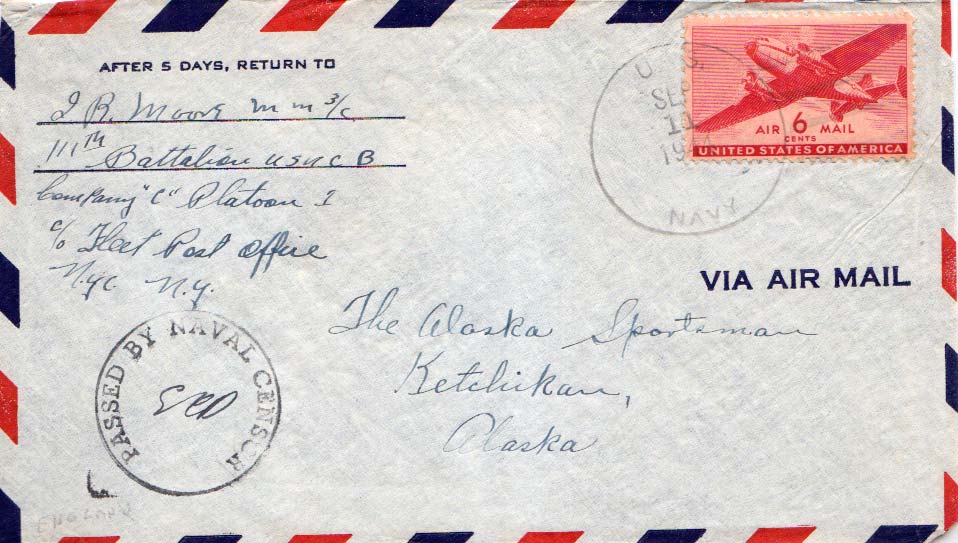 AFTER 5 DAYS, RETURN TO
J R. Moore m m 3/c
111TH Battalion USNCB
Company "C" Platoon 1
c/o Fleet Post Office
N.Y.C. N.Y.
U. S.
SEP
11
NAVY
AIR 6 MAIL
CENTS
UNITED STATES OF AMERICA
VIA AIR MAIL
The Alaska Sportsman
Ketchikan,
Alaska
PASSED BY NAVAL CENSOR
ENGLAND